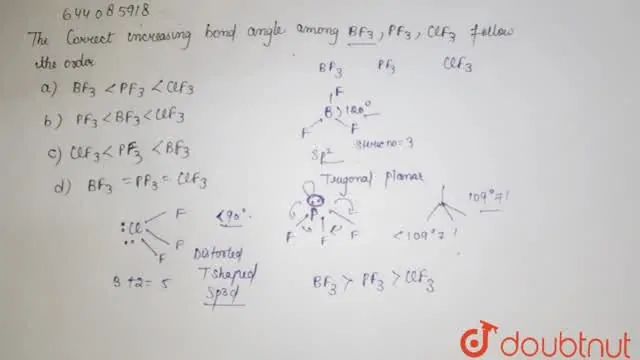 644085918
The Correct increasing bond angle among BF3, PF3, ClF3 follow
the order
a) BF3 < PF3 < ClF3
b) PF3 < BF3 < ClF3
c) ClF3 < PF3 < BF3
d) BF3 = PF3 = ClF3
BF3 PF3 ClF3
F
B 120°
F F
Steric no = 3
Sp2
Trigonal planar
P
F F F
109°7'
<109°7'
:Cl F
F
F
<90°
Distorted
T Shaped
Sp3d
3+2=5
BF3 > PF3 > ClF3
doubtnut